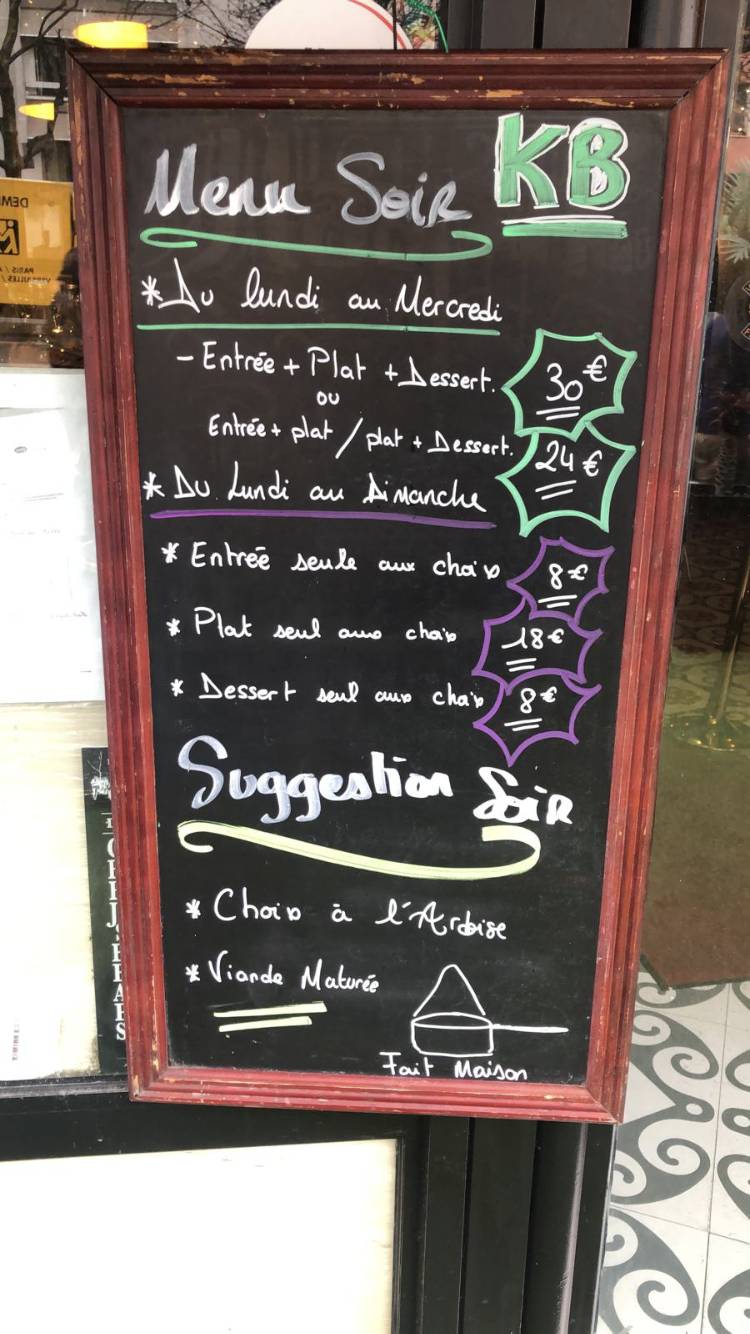 Menu Soir KB
* Du lundi au Mercredi
- Entrée + Plat + Dessert. 30€
ou
Entrée + plat / plat + Dessert. 24€
* Du Lundi au Dimanche
* Entrée seule aux choix 8€
* Plat seul aux choix 18€
* Dessert seul aux choix 8€
Suggestion Soir
* Choix à l'Ardoise
* Viande Maturée
Fait Maison